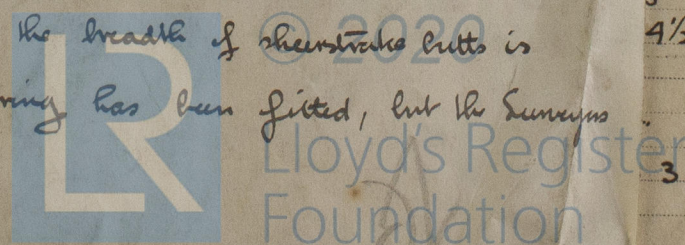 the breadth of sheerstrake butts is
ring has been fitted, but the Surveyors
4½
3
© 2020
LR
Lloyd's Register
Foundation